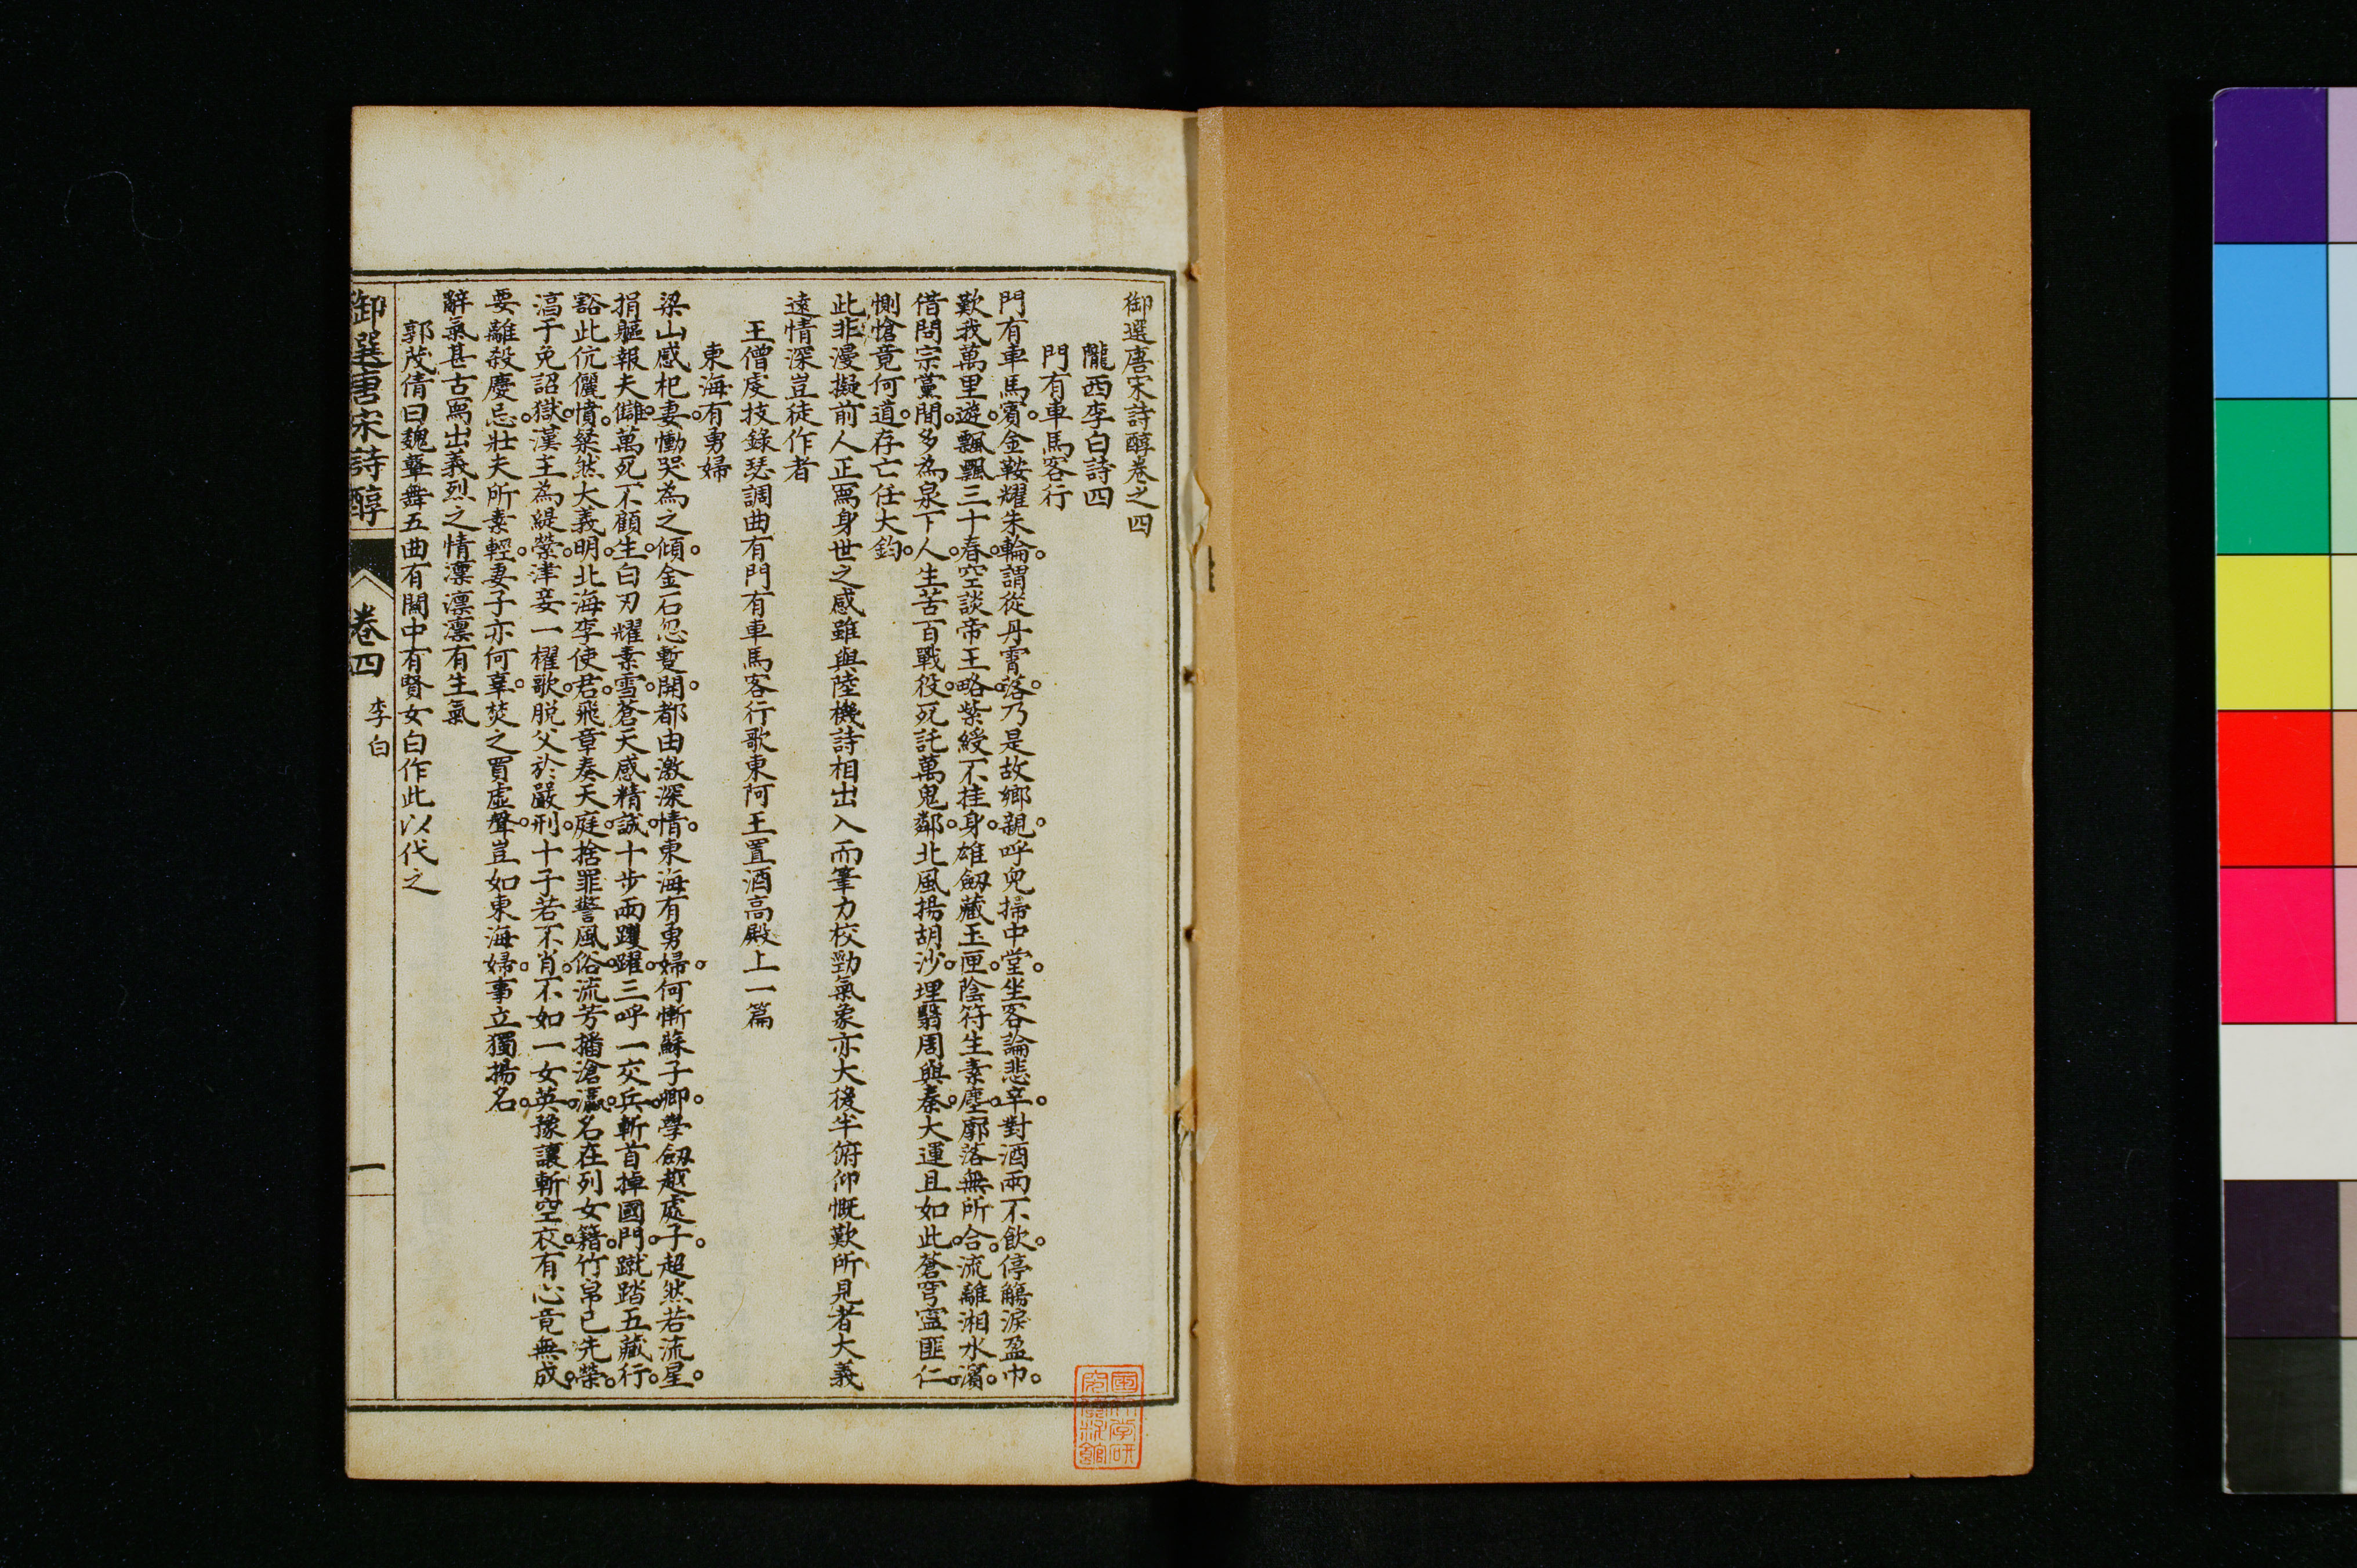 御選唐宋詩醇卷之四
隴西李白詩四
門有車馬客行
門有車馬賓金鞍耀朱輪謂從丹霄落乃是故鄉親呼兒掃中堂坐客論悲辛對酒兩不飲停觴淚盈巾
歎我萬里遊飄飄三十春空談帝王略紫綬不挂身雄劔藏玉匣陰符生素塵廓落無所合流離湘水濱
借問宗黨間多為泉下人生苦百戰役死託萬鬼鄰北風揚胡沙埋翳周與秦大運且如此蒼穹寍匪仁
惻愴竟何道存亡任大鈞
此非漫擬前人正寫身世之感雖與陸機詩相出入而筆力校勁氣象亦大後半俯仰慨歎所見者大義
遠情深豈徒作者
王僧虔技錄瑟調曲有門有車馬客行歌東阿王置酒高殿上一篇
東海有勇婦
梁山感杞妻慟哭為之傾金石忽蹔開都由激深情東海有勇婦何慚蘇子卿學劔越處子超然若流星
捐軀報夫讎萬死不顧生白刃耀素雪蒼天感精誠十步兩躩躍三呼一交兵斬首掉國門蹴踏五藏行
豁此伉儷憤粲然大義明北海李使君飛章奏天庭捨罪警風俗流芳播滄瀛名在列女籍竹帛已先榮
淳于免詔獄漢主為緹縈津妾一櫂歌脱父於嚴刑十子若不肖不如一女英豫讓斬空衣有心竟無成
要離殺慶忌壯夫所素輕妻子亦何辜焚之買虛聲豈如東海婦事立獨揚名
辭氣甚古寫出義烈之情凛凛有生氣
郭茂倩曰魏鞞舞五曲有關中有賢女白作此以代之
御選唐宋詩醇
卷四
李白
一